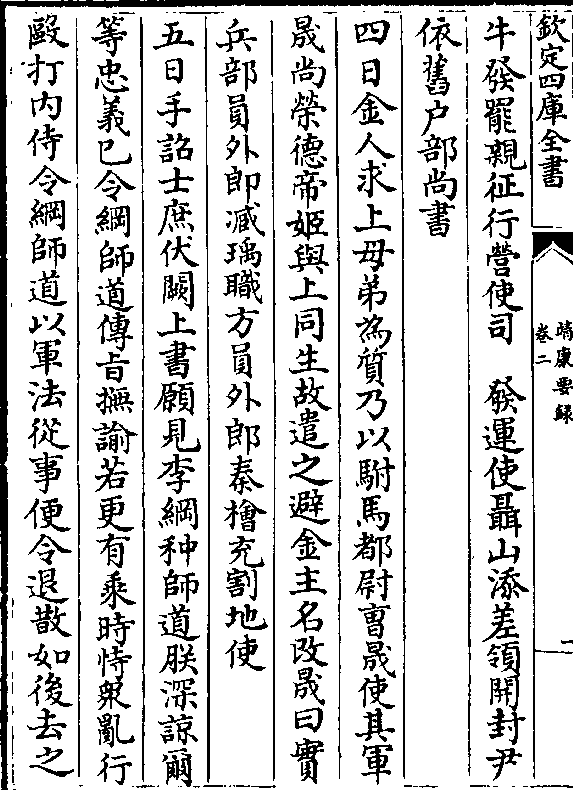 欽定四庫全書
靖康要録
卷二
一
牛發罷親征行營使司　發運使聶山添差領開封尹
依舊户部尚書
四日金人求上母弟為質乃以駙馬都尉曹晟使其軍
晟尚榮德帝姬與上同生故遣之避金主名改晟曰實
兵部員外郎滅瑀職方員外郎秦檜充割地使
五日手詔士庶伏闕上書願見李綱种師道朕深諒爾
等忠義已令綱師道傳旨撫諭若更有乘時恃衆亂行
毆打内侍令綱師道以軍法從事便令退散如後去之